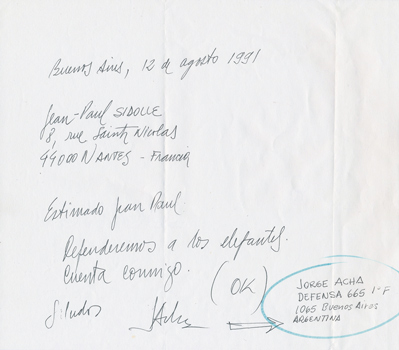 Buenos Aires, 12 de agosto 1991
Jean-Paul SIDOLLE
8, rue Sainte Nicolas
44000 NANTES - Francia
Estimado Jean Paul:
Defenderemos a los elefantes.
Cuenta conmigo.
(OK)
Saludos
JAcha
JORGE ACHA
DEFENSA 665 1º F
1065 BUENOS AIRES
ARGENTINA